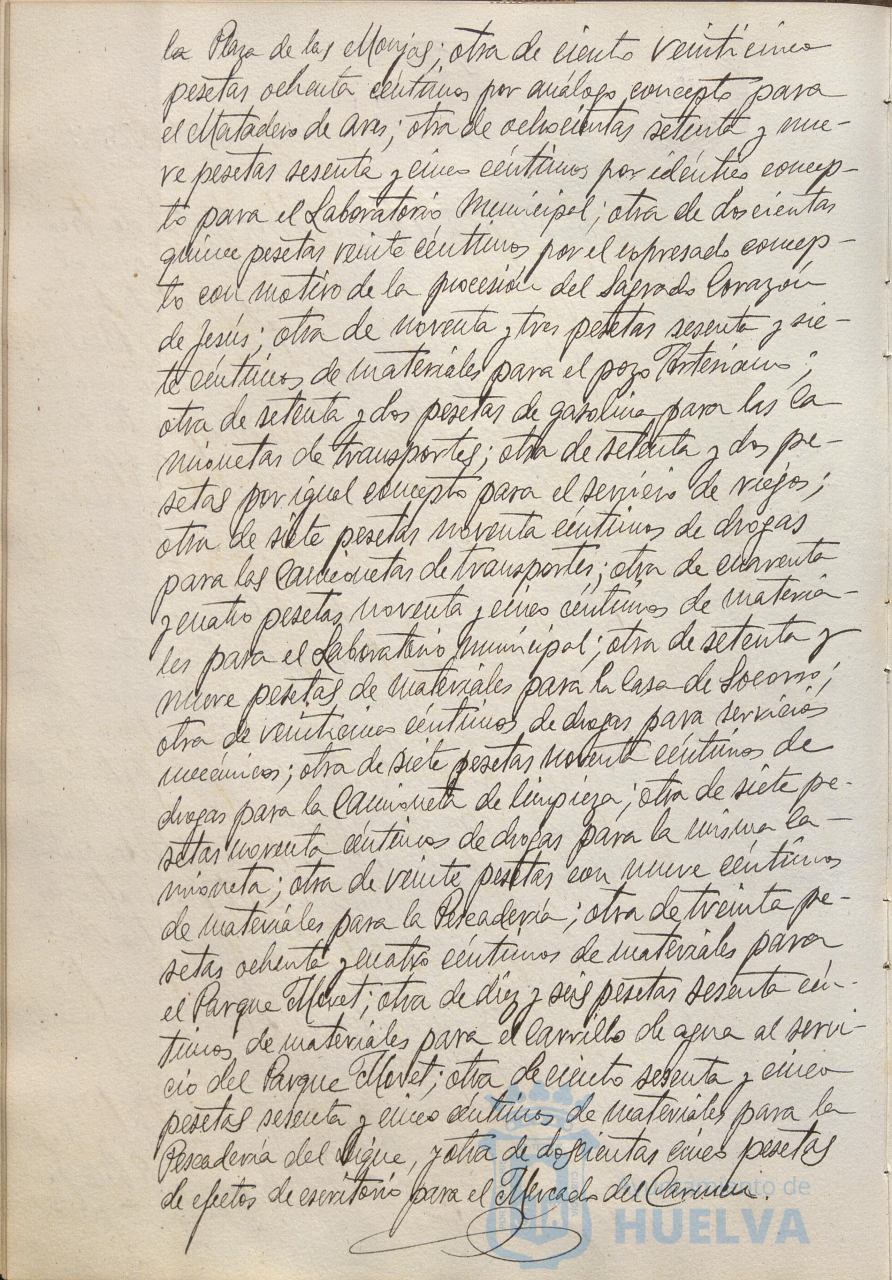 la Plaza de las Monjas; otra de ciento veinticinco
pesetas ochenta céntimos por análogo concepto para
el Matadero de Aves; otra de ochocientas setenta y nue-
ve pesetas sesenta y cinco céntimos por idéntico concep-
to para el Laboratorio Municipal; otra de doscientas
quince pesetas veinte céntimos por el expresado concep-
to con motivo de la procesión del Sagrado Corazón
de Jesús; otra de noventa y tres pesetas sesenta y sie-
te céntimos de materiales para el pozo Artesiano;
otra de setenta y dos pesetas de gasolina para las ca
mionetas de transportes; otra de setenta y dos pe-
setas por igual concepto para el servicio de riegos;
otra de siete pesetas noventa céntimos de drogas
para las camionetas de transportes; otra de cuarenta
y cuatro pesetas noventa y cinco céntimos de materia-
les para el Laboratorio Municipal; otra de setenta y
nueve pesetas de materiales para la Casa de Socorro;
otra de veinticinco céntimos de drogas para servicios
mecánicos; otra de siete pesetas noventa céntimos de
drogas para la Camioneta de limpieza; otra de siete pe-
setas noventa céntimos de drogas para la misma ca-
mioneta; otra de veinte pesetas con nueve céntimos
de materiales para la Pescadería; otra de treinta pe-
setas ochenta y cuatro céntimos de materiales para
el Parque Moret; otra de diez y seis pesetas sesenta cén-
timos de materiales para el carrillo de agua al servi-
cio del Parque Moret; otra de ciento sesenta y cinco
pesetas sesenta y cinco céntimos de materiales para la
Pescadería del dique, y otra de doscientas cinco pesetas
de efectos de escritorio para el Mercado del Carmen.
Ayuntamiento de
HUELVA